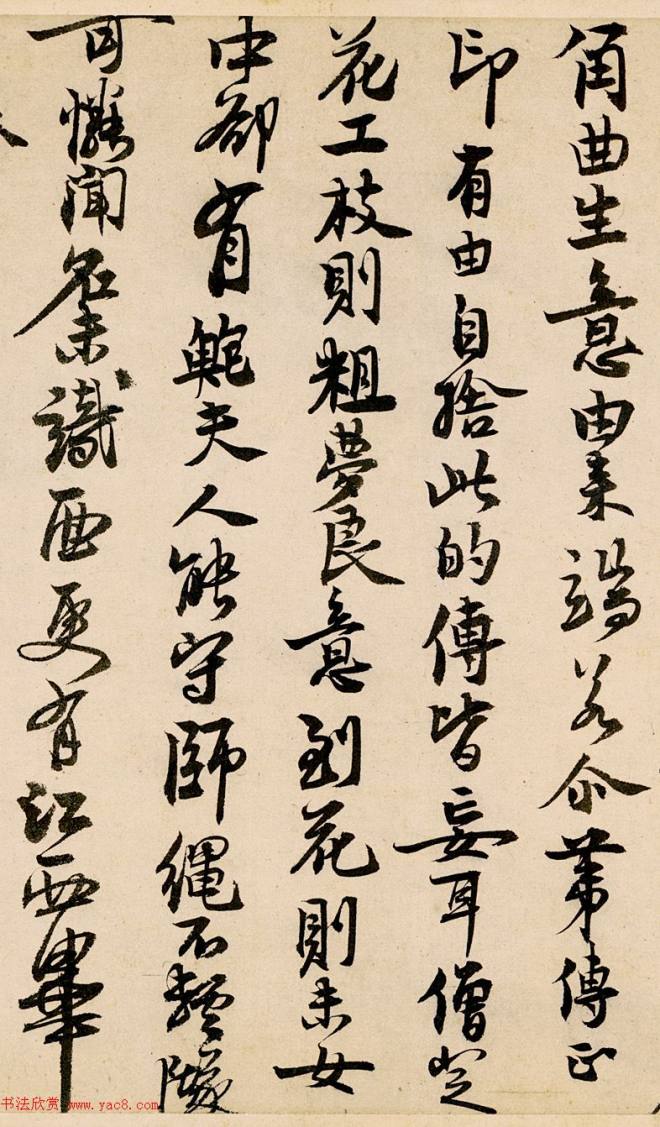 角曲生意由来端若尒苐傳正
印有由自捨此的傳皆妄耳僧定
花工枝則粗夢良意到花則未女
中却有鮑夫人能守師繩不輕墜
可憐聞名未識面更有江西畢
书法欣赏 www.yac8.com